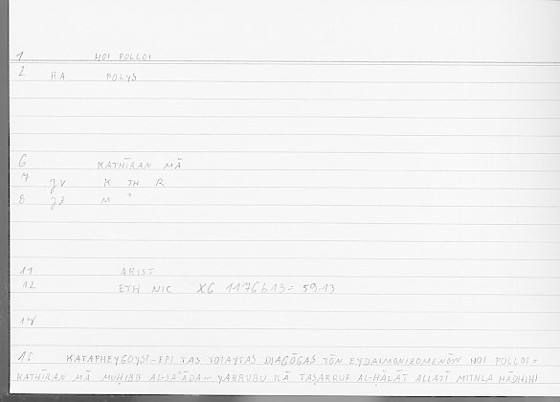 1 HOI POLLOI
2 HA POLYS
6 KATHĪRAN MĀ
7 JV K TH R
8 JZ M ʾ
11 ARIST
12 ETH NIC X6 1176b13 = 59.13
14
15 KATAPHEYGOYSI-EPI TAS TOIAYTAS DIAGŌGAS TŌN EYDAIMONIZOMENŌN HOI POLLOI =
KATHĪRAN MĀ MUḤIBB AL-SAʿĀDA YAHRUBU ILĀ TAṢARRUF AL-ḤĀLĀT ALLATĪ MITHLA HĀDHIHI